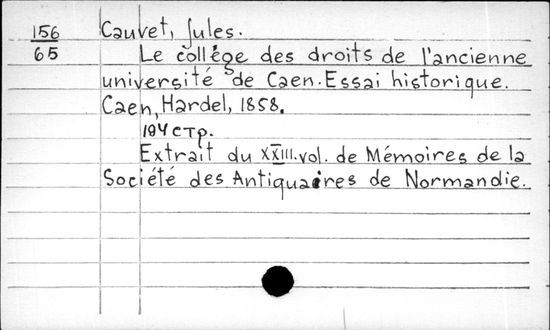 156 Cauvet, Jules.
65 Le collége des droits de l'ancienne
université de Caen. Essai historique.
Caen, Hardel, 1858.
194 стр.
Extrait du XXIII. vol. de Mémoires de la
Société des Antiquaires de Normandie.